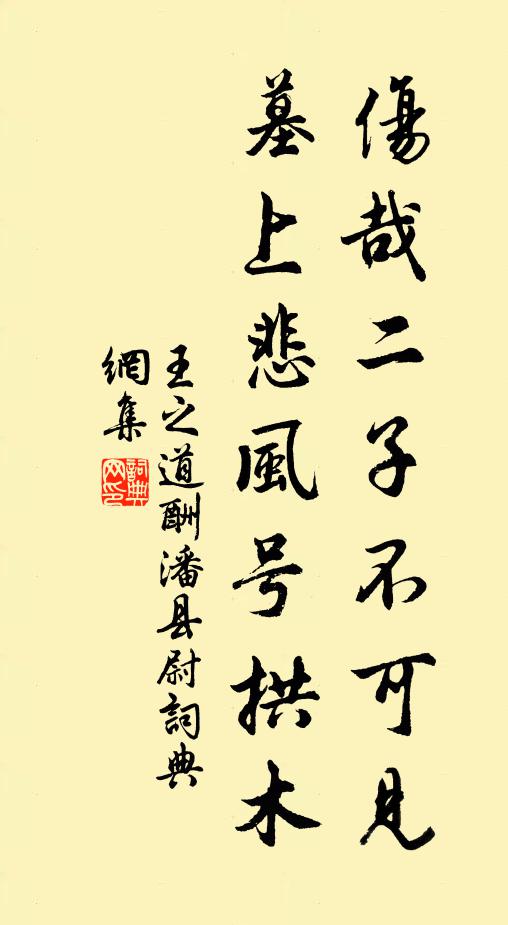 傷哉二子不可見
墓上悲風号拱木
王之道酬潘县尉詞典
網集
詞典网印